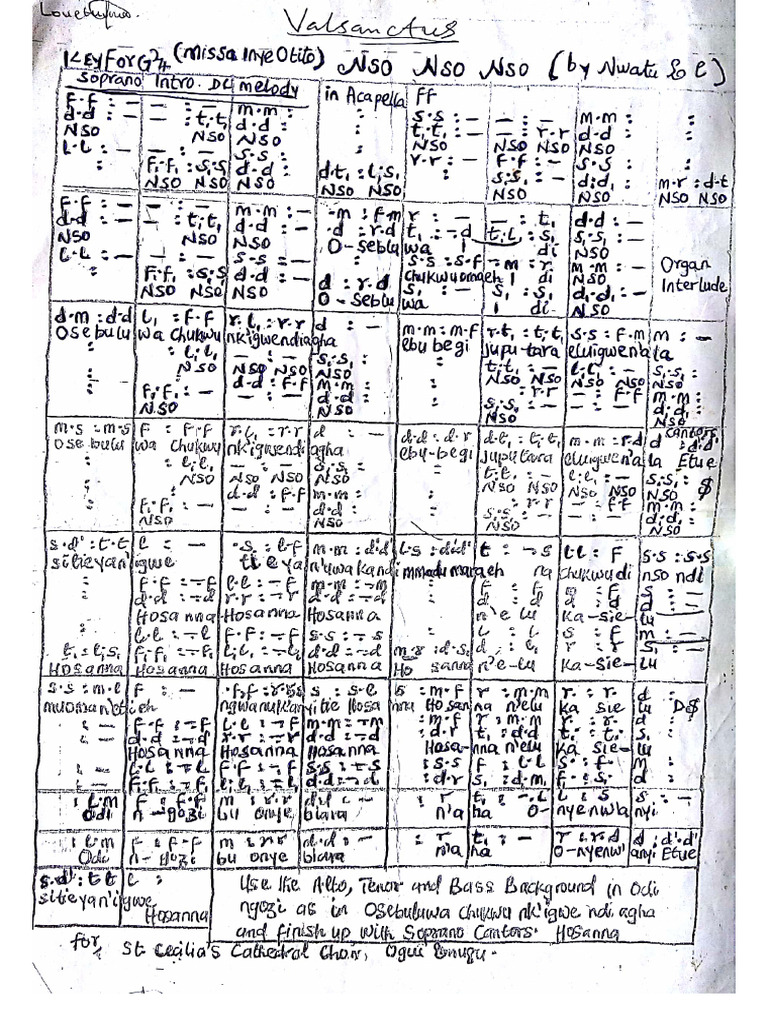 Valsanctus
KEY For G 2/4 (missa Inye Otito) NSO NSO NSO (by Nwatu So C)
Soprano Intro. DC melody in Acapella FF
f.f : — — : — m.m : — : s.s : — — : — m.m : :
d.d : — — : t₁.t₁ d.d : : t.t₁ : — — : r.r d.d : :
NSO NSO NSO NSO NSO NSO NSO
l.l : — — : — s.s : : r.r : — f.f : — s.s : :
: f₁.f₁ : s₁.s₁ d.d : d.t₁ : l₁.s₁ s₁.s₁ : — d₁.d₁ : m.r : d.t
NSO NSO NSO NSO NSO NSO NSO NSO NSO
f.f : — — : — m.m : — -m : f.m r : — — : t₁ d.d : —
d.d : — — : t₁.t₁ d.d : .d : r.d t₁ : -.d t₁.l₁ : s₁ s₁.s₁ : —
NSO NSO NSO O-seblu wa di NSO
l.l : — — : — s.s : — s.s : s.f -m : r m.m : — Organ
: f₁.f₁ : s₁.s₁ d.d : — d : r.d chukwuomaeh di d₁.d₁ : — Interlude
NSO NSO NSO O-seblu wa di NSO
d.m : d.d l₁ : f.f r.l₁ : r.r d : — m.m : m.f r.t₁ : t₁.t₁ s.s : f.m m : —
Osebulu wa chukwu nkigwendiagha ebubegi juputara eluigwenala
: : l₁.l₁ — : — s₁.s₁ : : t₁.t₁ : — l₁.l₁ : — s₁.s₁ :
NSO NSO NSO NSO NSO NSO NSO NSO NSO
: f₁.f₁ : — d.d : f.f m.m : : : r.r — : f.f m.m :
: — : — d.d : s₁.s₁ : — — : — d₁.d₁ :
NSO NSO NSO NSO
m.s : m.s f : f.f r.l₁ : r.r d : — d.d : d.r d.t₁ : t₁.t₁ m.m : r.d d : d'.d'
cantors
Osebulu wa chukwu nkigwendiagha ebu-begi juputara eluigwen'ala Etue
: : l₁.l₁ — : — s₁.s₁ : : t₁.t₁ : — l₁.l₁ : — s₁.s₁ :
NSO NSO NSO NSO NSO NSO NSO NSO NSO $
: f₁.f₁ : — d.d : f.f m.m : : : r.r — : f.f m.m :
NSO — : — d.d : s₁.s₁ : — — : — d₁.d₁ :
NSO NSO NSO
s.d' : t.t l : — .s : l.f m.m : d'.d' l.s : d'.d' t : -.s l.l : f s.s : s.s
sitieyan'igwe tieya n'uwakandi mmadumaraeh na chukwudi nso ndi
: f.f : -.f l.l : -.f m.m : -.m : f : f s : f s : —
: d.d : -.d r.r : -.d d.d : -.d : d : d d : d d : —
Hosanna Hosanna Hosanna n'e lu ka-sie- lu
l.l : -.l f.f : -.f s.s : -.s l : l s : f m : —
t₁ : l₁.s₁ f₁.f₁ : -.f₁ l₁.l₁ : -.f₁ d.d : -.d m.r : d.s₁ d : r s₁ : —
Hosanna Hosanna Hosanna Hosanna Ho sanna n'e-lu ka-sie- lu
s.s : m.l f : — .f.f : r.s s : s.l s : m.f r : m.m r : r. d : D$
muoman'etieh ngwanukanyitie Hosa nna Hosanna n'elu ka sie lu
: — f.f : -.f l.l : -.f m.m : -.m : m.f r : m.m r : r. d :
: — d.d : -.d r.r : -.d d.d : -.d : d.r t₁ : d.d t₁ : t₁. s₁ :
Hosanna Hosanna Hosanna Hosa- nna n'elu ka sie- lu
: — l.l : -.l f.f : -.f s.s : -.s : s.s f : l.l s : f. m :
: — f₁.f₁ : -.f₁ l₁.l₁ : -.l₁ d.d : -.d : d.r s₁ : d.m f : s₁. d :
: l.m f : f.f m : r.r d.l : — : r t₁ : -.l₁ l₁ : s s : —
Odi n-gozi bu onye biara n'a ha O- nyenwa nyi
: l.m f : f.f m : r.r d.d : — : r t₁ : — r : r.d d : d'.d'
Odi n-gozi bu onye biara n'a ha O-nyenw' anyi Etue
s.d' : t.t l :
sitieyan'igwe
Hosanna
Use the Alto, Tenor and Bass Background in Odi
ngozi as in Osebuluwa chukwu nk'igwe ndi agha
and finish up with Soprano Cantors. Hosanna
for, St Cecilia's Cathedral Choir, Ogui Enugu.